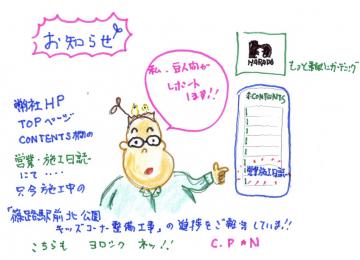 お知らせ
私、豆人間が
レポート
します!!
HARADA
もっと素敵にガーデニング
弊社HP
TOPページ
CONTENTS欄の
営業・施工日誌
にて・・・・
只今施工中の
「篠路駅前北公園
キッズコーナー整備工事」の進捗をご報告しています!!
こちらも ヨロシク ネッ!! C.P★N
CONTENTS
営業・施工日誌